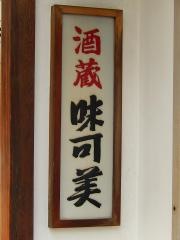 酒蔵味可美